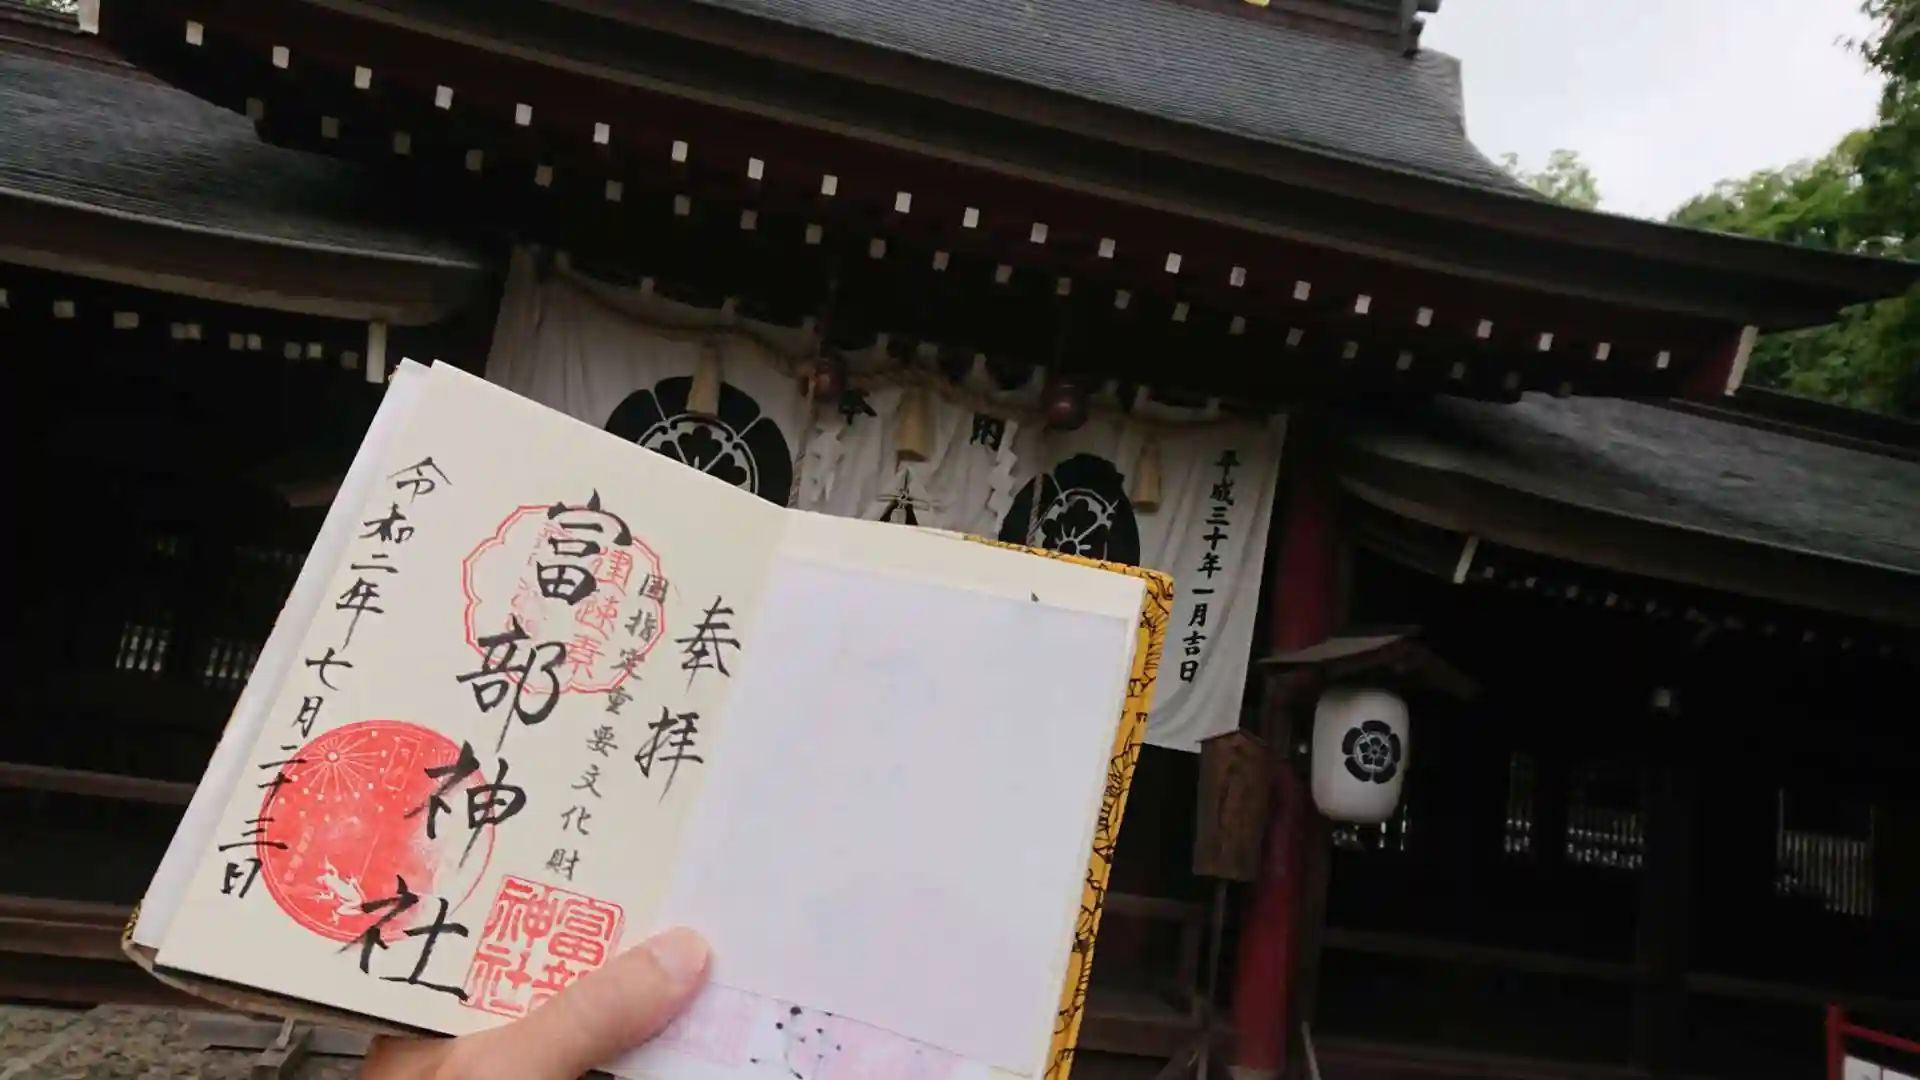 平成三十年一月吉日
奉納
奉拝
国指定重要文化財
富部神社
令和二年七月二十三日
富部神社